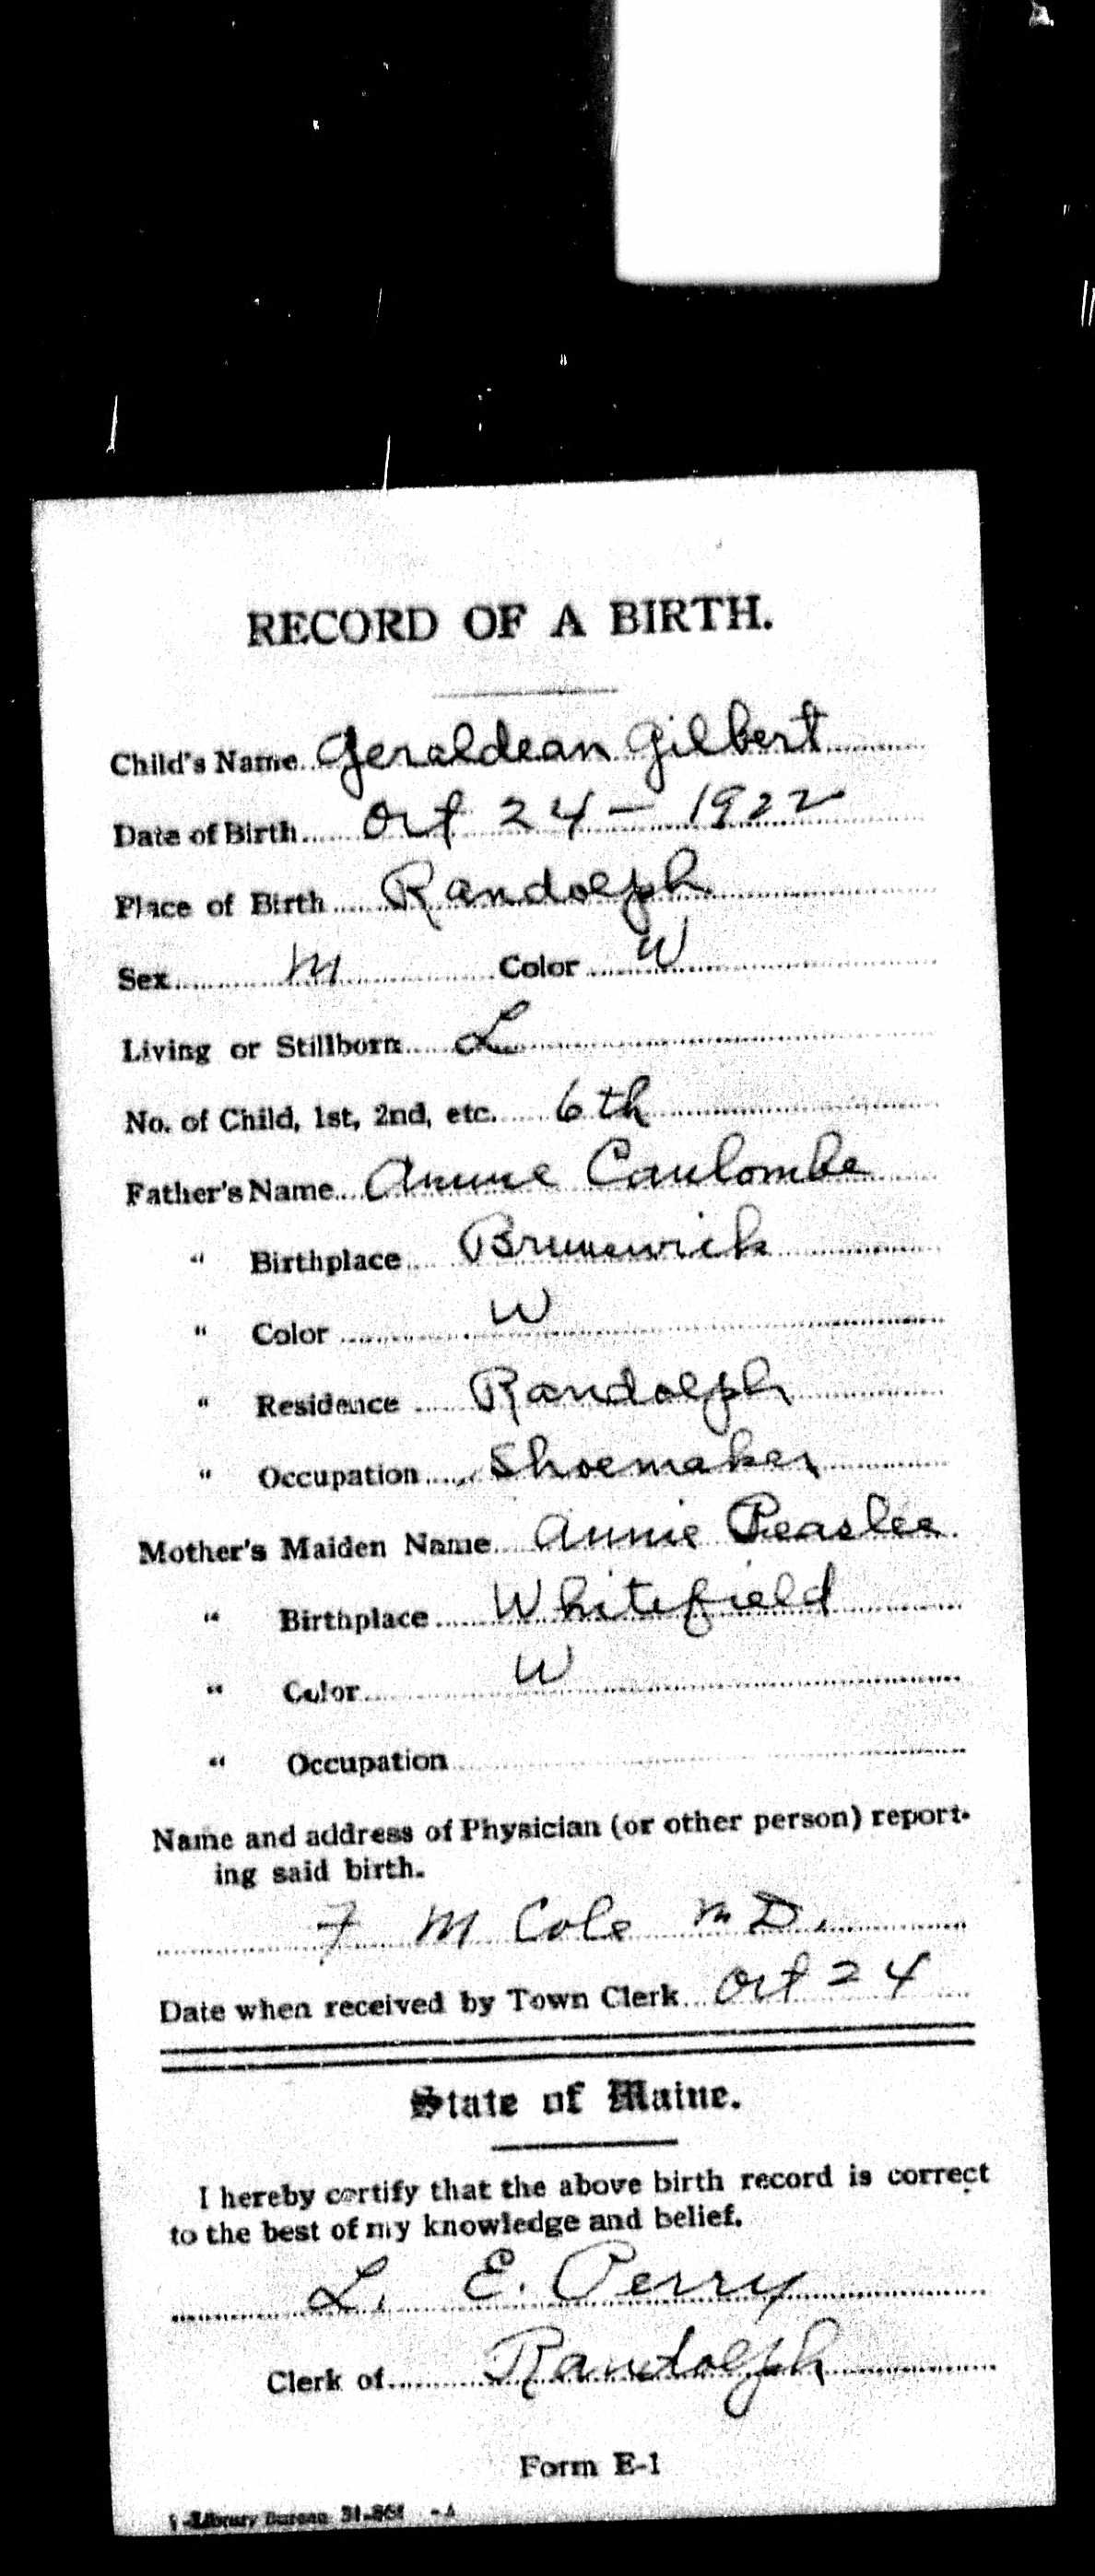 RECORD OF A BIRTH.
Child's Name Geraldean Gilbert
Date of Birth Oct 24 - 1922
Place of Birth Randolph
Sex M Color W
Living or Stillborn L
No. of Child, 1st, 2nd, etc. 6th
Father's Name Caulombe
" Birthplace Brunswick
" Color W
" Residence Randolph
" Occupation Shoemaker
Mother's Maiden Name Annie Peaslee
" Birthplace Whitefield
" Color W
" Occupation
Name and address of Physician (or other person) report-
ing said birth.
F M Cole M D.
Date when received by Town Clerk Oct 24
State of Maine.
I hereby certify that the above birth record is correct
to the best of my knowledge and belief.
L. E. Perry
Clerk of Randolph
Form E-1
Library Bureau